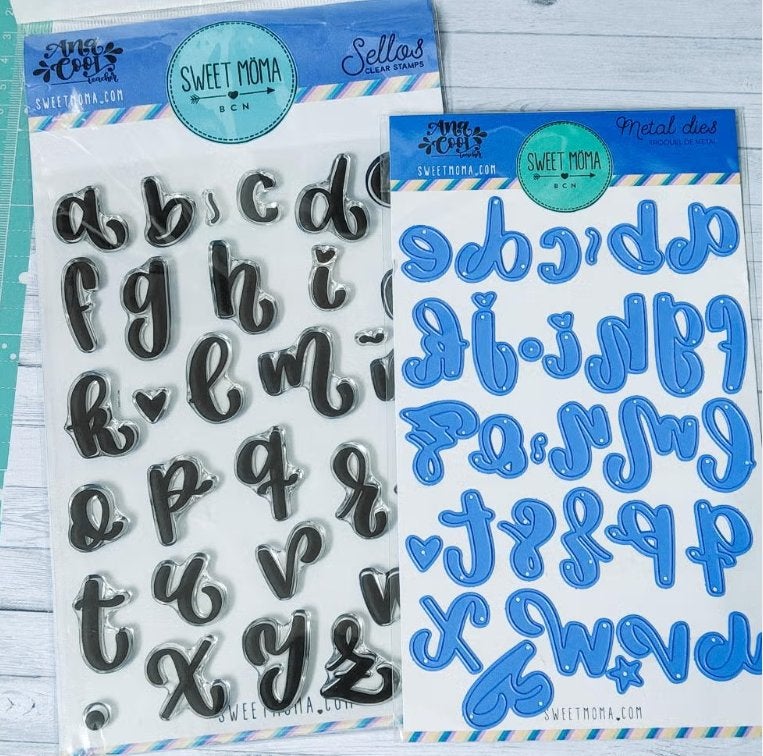 Ana
Cool
teacher
SWEET MÖMA
BCN
Sellos
CLEAR STAMPS
SWEETMOMA_COM
a b c d
f g h i
k l m
o p q r
t u v
x y z
SWEETMOMA.COM
Ana
Cool
teacher
SWEET MÖMA
BCN
Metal dies
TROQUEL DE METAL
SWEETMOMA_COM
e d c b a
k j i h g f
z o n m l
t s r q p
x w v u
y
SWEETMOMA.COM